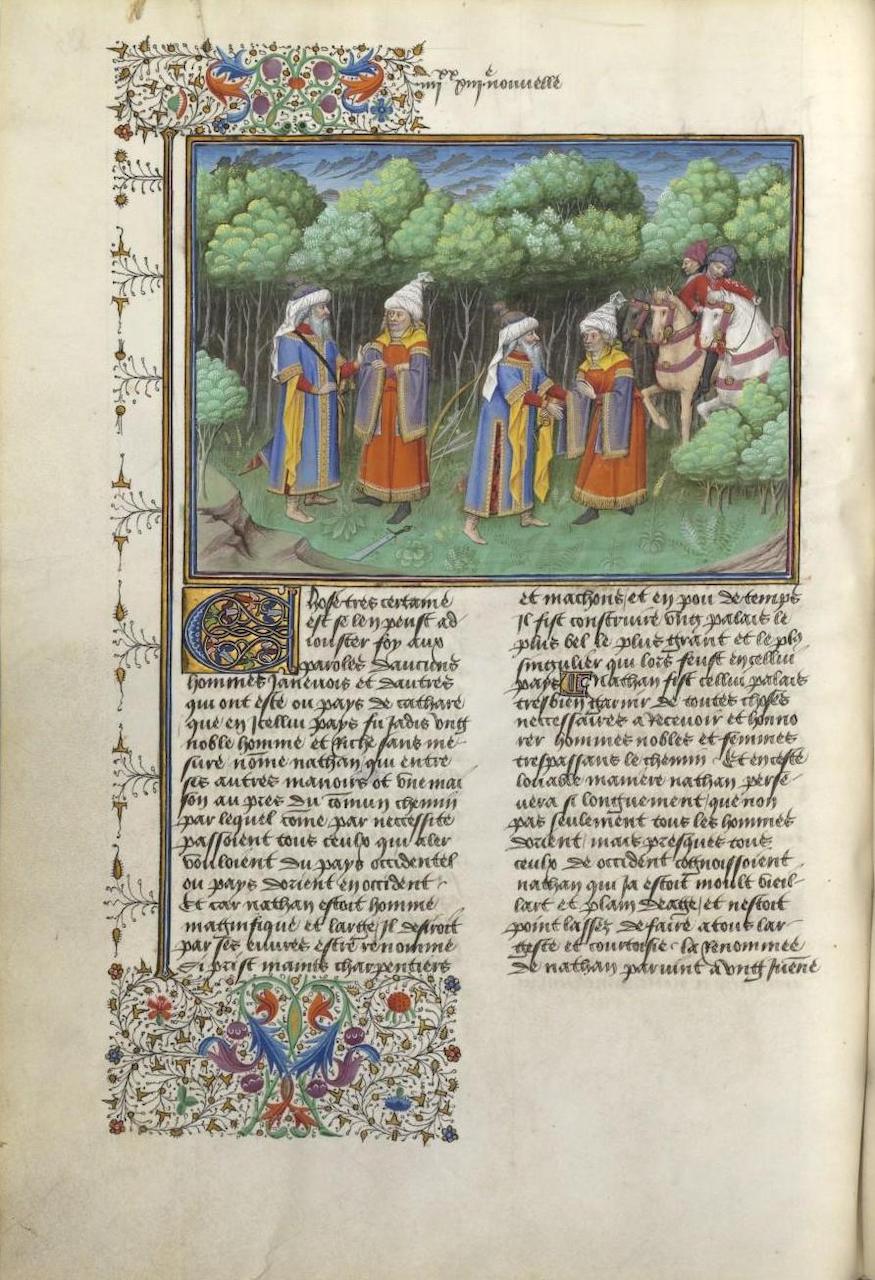 iiii xx xiii e nouuelle
Chose tres certaine
est se len peust ad
iouster foy aux
paroles danciens
hommes Janeuois et dautres
qui ont este ou pays de cathare
que en Jcellui pays fu Jadis vng
noble homme et Riche sans me
sure nōme nathan qui entre
ses autres manoirs ot vne mai
son au pres du cōmun chemin
par lequel cōme par necessite
passoient tous ceulx qui aler
vouloient du pays occidentel
ou pays dorient en occident
Et car nathan estoit homme
magnifique et large Jl desiroit
par ses euures estre renomme
Si prist maints charpentiers
et machons et en pou de temps
Jl fist construire vng palais le
plus bel le plus grant et le plus
singulier qui lors feust en cellui
pays Et Nathan fist cellui palais
tresbien garnir de toutes choses
necessaires a Receuoir et honno
rer hommes nobles et femmes
trespassans le chemin Et en ceste
louable maniere nathan perse
uera si longuement que non
pas seulemēt tous les hommes
dorient mais presques tous
ceulx de occident cognoissoient
nathan qui Ja estoit moult vieil
lart et plain deage et nestoit
point lassez de faire a tous lar
gesse et courtoisie la Renommee
de nathan paruint a vng Juene